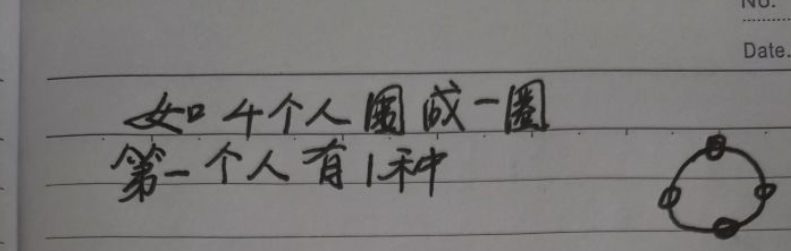 No.
Date.
如4个人围成一圈
第一个人有1种